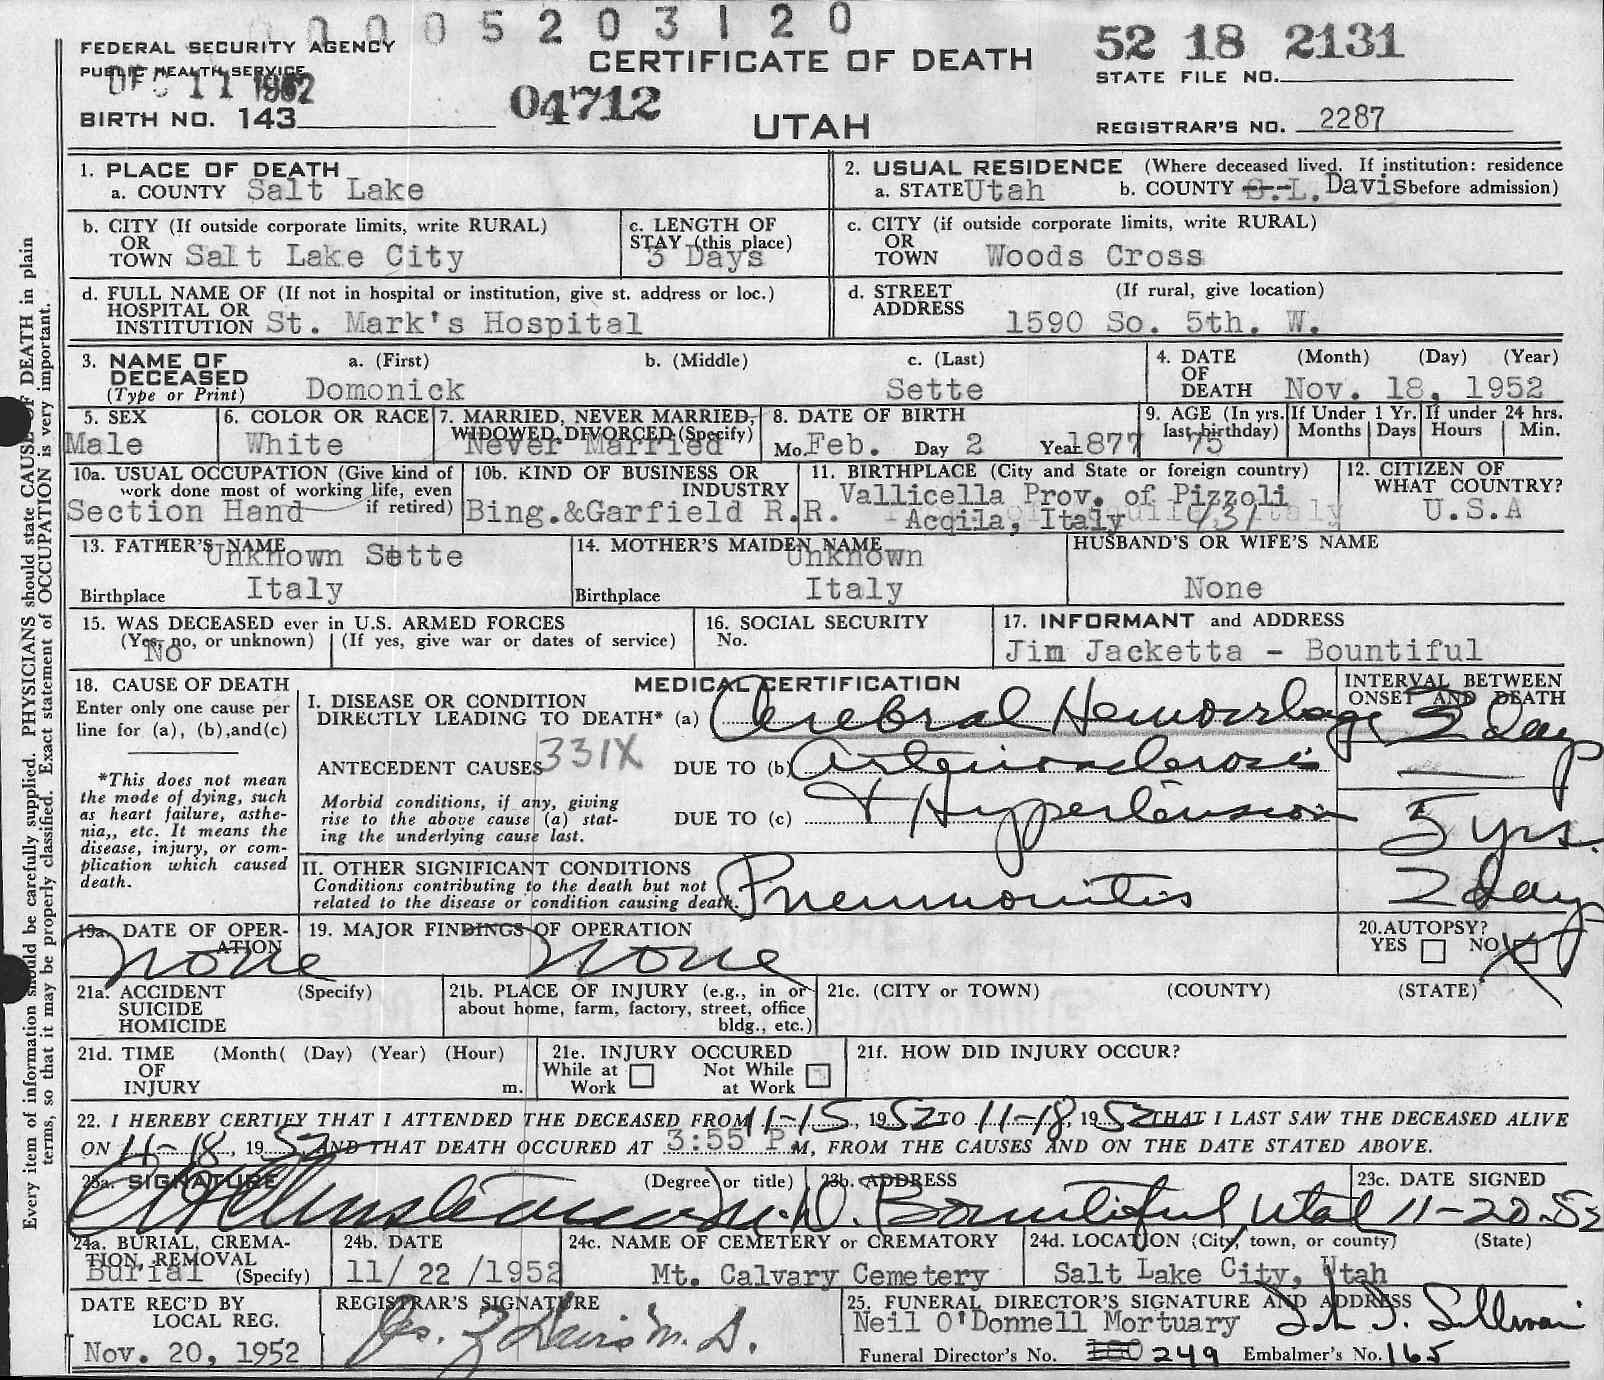 0 0 0 5 2 0 3 1 2 0
FEDERAL SECURITY AGENCY
PUBLIC HEALTH SERVICE
DEC 11 1952
BIRTH NO. 143
04712
CERTIFICATE OF DEATH
UTAH
52 18 2131
STATE FILE NO.
REGISTRAR'S NO. 2287
Every item of information should be carefully supplied. PHYSICIANS should state CAUSE OF DEATH in plain
terms, so that it may be properly classified. Exact statement of OCCUPATION is very important.
1. PLACE OF DEATH
a. COUNTY Salt Lake
2. USUAL RESIDENCE (Where deceased lived. If institution: residence
a. STATE Utah b. COUNTY S.L. Davis before admission)
b. CITY (If outside corporate limits, write RURAL)
OR
TOWN Salt Lake City
c. LENGTH OF
STAY (this place)
3 Days
c. CITY (if outside corporate limits, write RURAL)
OR
TOWN Woods Cross
d. FULL NAME OF (If not in hospital or institution, give st. address or loc.)
HOSPITAL OR
INSTITUTION St. Mark's Hospital
d. STREET (If rural, give location)
ADDRESS
1590 So. 5th. W.
3. NAME OF a. (First) b. (Middle) c. (Last)
DECEASED
(Type or Print) Domonick Sette
4. DATE (Month) (Day) (Year)
OF
DEATH Nov. 18, 1952
5. SEX
Male
6. COLOR OR RACE
White
7. MARRIED, NEVER MARRIED,
WIDOWED, DIVORCED (Specify)
Never Married
8. DATE OF BIRTH
Mo. Feb. Day 2 Year 1877
9. AGE (In yrs.
last birthday)
75
If Under 1 Yr.
Months Days
If under 24 hrs.
Hours Min.
10a. USUAL OCCUPATION (Give kind of
work done most of working life, even
if retired)
Section Hand
10b. KIND OF BUSINESS OR
INDUSTRY
Bing.&Garfield R.R.
11. BIRTHPLACE (City and State or foreign country)
Vallicella Prov. of Pizzoli
Acqila, Italy
12. CITIZEN OF
WHAT COUNTRY?
U.S.A
13. FATHER'S NAME
Unknown Sette
Birthplace Italy
14. MOTHER'S MAIDEN NAME
Unknown
Birthplace Italy
HUSBAND'S OR WIFE'S NAME
None
15. WAS DECEASED ever in U.S. ARMED FORCES
(Yes, no, or unknown) (If yes, give war or dates of service)
No
16. SOCIAL SECURITY
No.
17. INFORMANT and ADDRESS
Jim Jacketta - Bountiful
18. CAUSE OF DEATH
Enter only one cause per
line for (a), (b),and(c)
*This does not mean
the mode of dying, such
as heart failure, asthe-
nia,, etc. It means the
disease, injury, or com-
plication which caused
death.
MEDICAL CERTIFICATION
INTERVAL BETWEEN
ONSET AND DEATH
I. DISEASE OR CONDITION
DIRECTLY LEADING TO DEATH* (a) Cerebral Hemorrhage 3 days
331X
ANTECEDENT CAUSES DUE TO (b) Arteriosclerosis
Morbid conditions, if any, giving
rise to the above cause (a) stat-
ing the underlying cause last.
DUE TO (c) + Hypertension 5 yrs.
II. OTHER SIGNIFICANT CONDITIONS
Conditions contributing to the death but not
related to the disease or condition causing death.
Pneumonitis 2 days
19a. DATE OF OPER-
ATION
none
19. MAJOR FINDINGS OF OPERATION
none
20.AUTOPSY?
YES NO X
21a. ACCIDENT (Specify)
SUICIDE
HOMICIDE
21b. PLACE OF INJURY (e.g., in or
about home, farm, factory, street, office
bldg., etc.)
21c. (CITY or TOWN) (COUNTY) (STATE)
21d. TIME (Month( (Day) (Year) (Hour)
OF
INJURY m.
21e. INJURY OCCURED
While at Not While
Work at Work
21f. HOW DID INJURY OCCUR?
22. I HEREBY CERTIFY THAT I ATTENDED THE DECEASED FROM 11-15, 1952 TO 11-18, 1952 THAT I LAST SAW THE DECEASED ALIVE
ON 11-18, 1952 AND THAT DEATH OCCURED AT 3:55 P.M, FROM THE CAUSES AND ON THE DATE STATED ABOVE.
23a. SIGNATURE (Degree or title)
M.D.
23b. ADDRESS
Bountiful Utah
23c. DATE SIGNED
11-20-52
24a. BURIAL, CREMA-
TION, REMOVAL
Burial (Specify)
24b. DATE
11/ 22 /1952
24c. NAME OF CEMETERY or CREMATORY
Mt. Calvary Cemetery
24d. LOCATION (City, town, or county) (State)
Salt Lake City, Utah
DATE REC'D BY
LOCAL REG.
Nov. 20, 1952
REGISTRAR'S SIGNATURE
Davis M.D.
25. FUNERAL DIRECTOR'S SIGNATURE AND ADDRESS
Neil O'Donnell Mortuary
Funeral Director's No. 249 Embalmer's No. 165